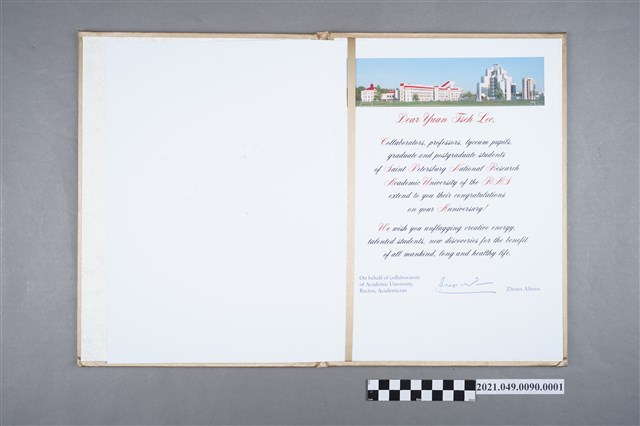 Dear Yuan Tseh Lee,
Collaborators, professors, lyceum pupils,
graduate and postgraduate students
of Saint Petersburg National Research
Academic University of the RAS
extend to you their congratulations
on your Anniversary!
We wish you unflagging creative energy,
talented students, new discoveries for the benefit
of all mankind, long and healthy life.
On behalf of collaborators
of Academic University,
Rector, Academician
Zhores Alferov
2021.049.0090.0001